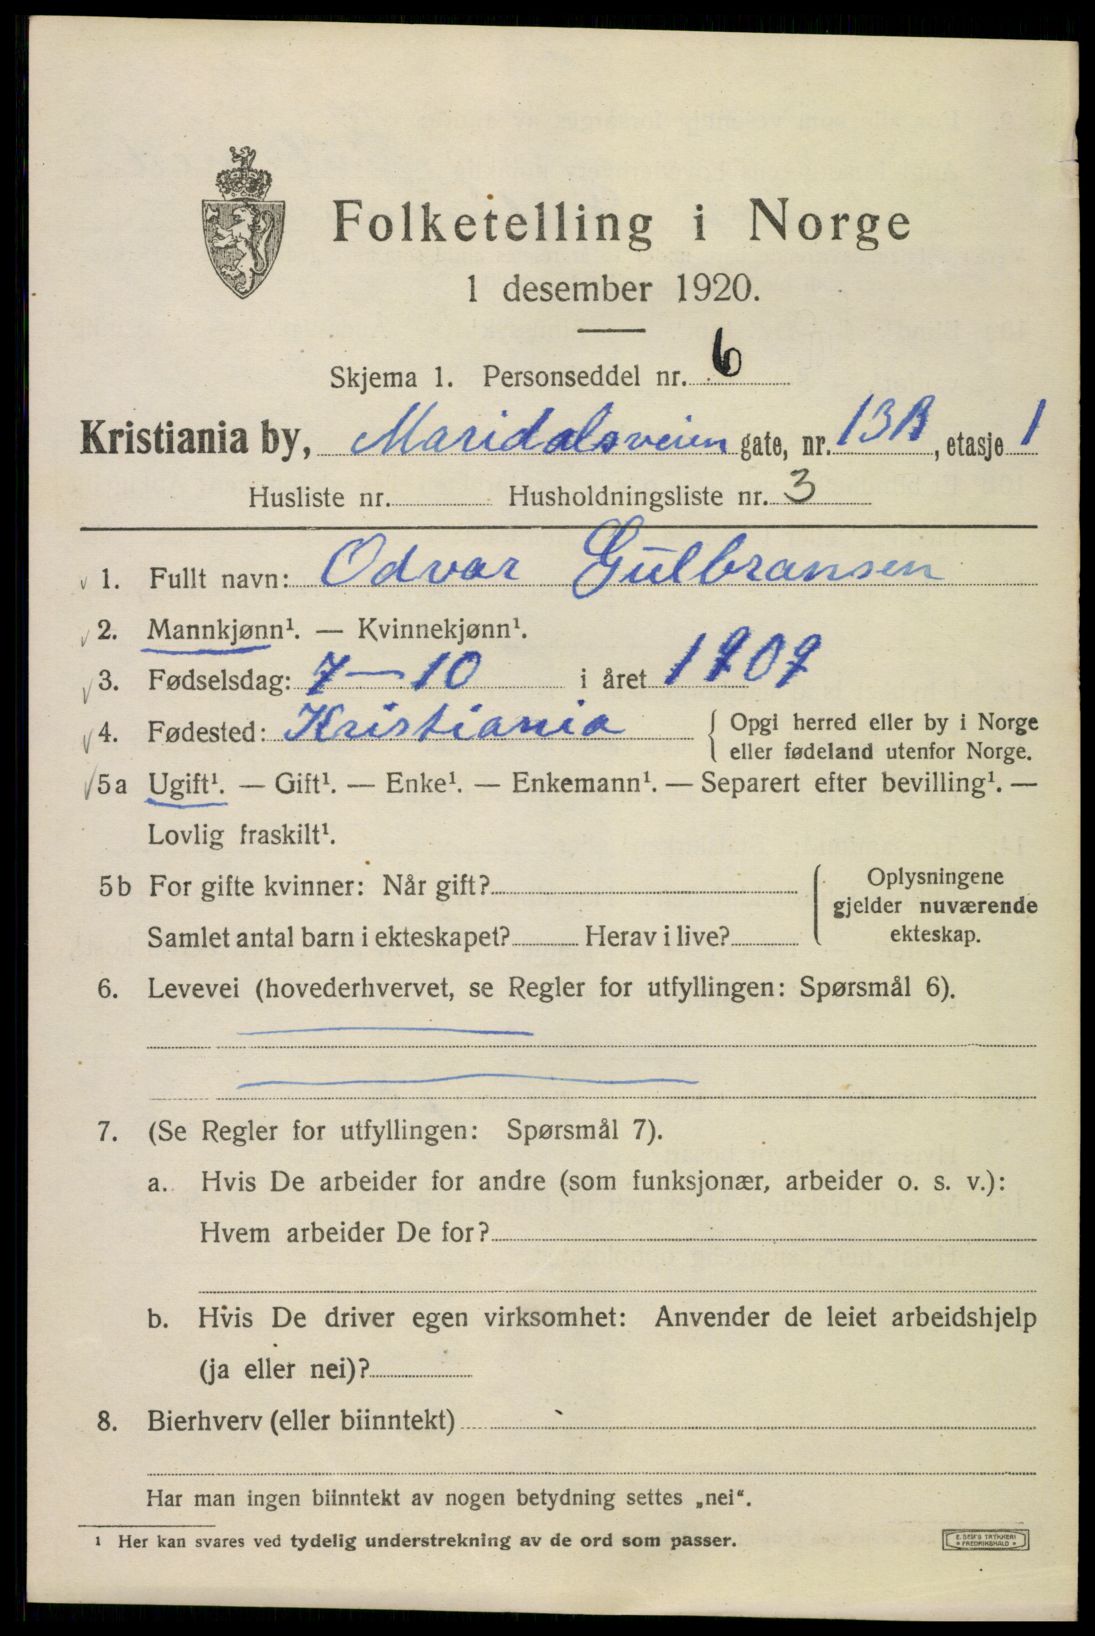 Folketelling i Norge
1 desember 1920.
Skjema 1. Personseddel nr. 6
Kristiania by, Maridalsveien gate, nr. 13B, etasje 1
Husliste nr. Husholdningsliste nr. 3
1. Fullt navn: Odvar Gulbransen
2. Mannkjønn¹. — Kvinnekjønn¹.
3. Fødselsdag: 7—10 i året 1909
4. Fødested: Kristiania { Opgi herred eller by i Norge
eller fødeland utenfor Norge.
5a Ugift¹. — Gift¹. — Enke¹. — Enkemann¹. — Separert efter bevilling¹. —
Lovlig fraskilt¹.
5b For gifte kvinner: Når gift? { Oplysningene
gjelder nuværende
Samlet antal barn i ekteskapet? Herav i live? ekteskap.
6. Levevei (hovederhvervet, se Regler for utfyllingen: Spørsmål 6).
7. (Se Regler for utfyllingen: Spørsmål 7).
a. Hvis De arbeider for andre (som funksjonær, arbeider o. s. v.):
Hvem arbeider De for?
b. Hvis De driver egen virksomhet: Anvender de leiet arbeidshjelp
(ja eller nei)?
8. Bierhverv (eller biinntekt)
Har man ingen biinntekt av nogen betydning settes „nei“.
¹ Her kan svares ved tydelig understrekning av de ord som passer.
E. SEM'S TRYKKERI
• FREDRIKSHALD •